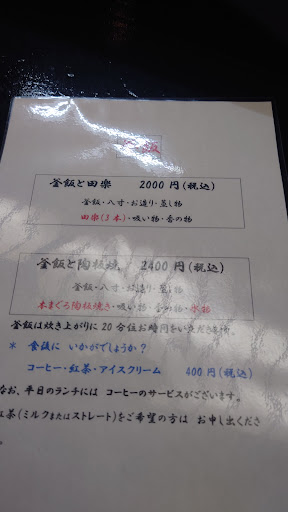 釜飯と田楽 2000円(税込)
釜飯・八寸・お造り・蒸し物
田楽(3本)・吸い物・香の物
釜飯と陶板焼 2400円(税込)
釜飯・八寸・お造り・蒸し物
本まぐろ陶板焼き・吸い物・香の物・水物
釜飯は炊き上がりに20分位お時間をいただきます。
* 食後に いかがでしょうか?
コーヒー・紅茶・アイスクリーム 400円(税込)
なお、平日のランチには コーヒーのサービスがございます。
紅茶(ミルクまたはストレート)をご希望の方は お申し出くださ